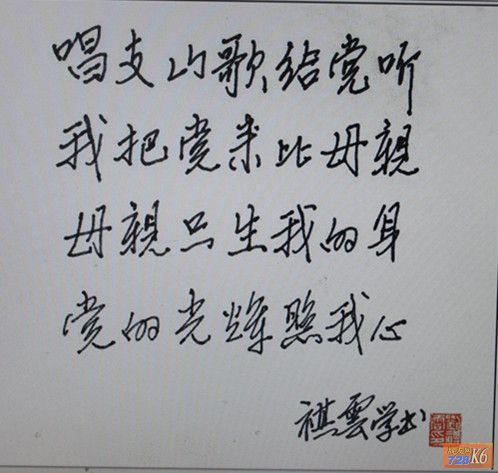 唱支山歌给党听
我把党来比母親
母親只生我的身
党的光辉照我心
祺雲学书
战友网
728 K6